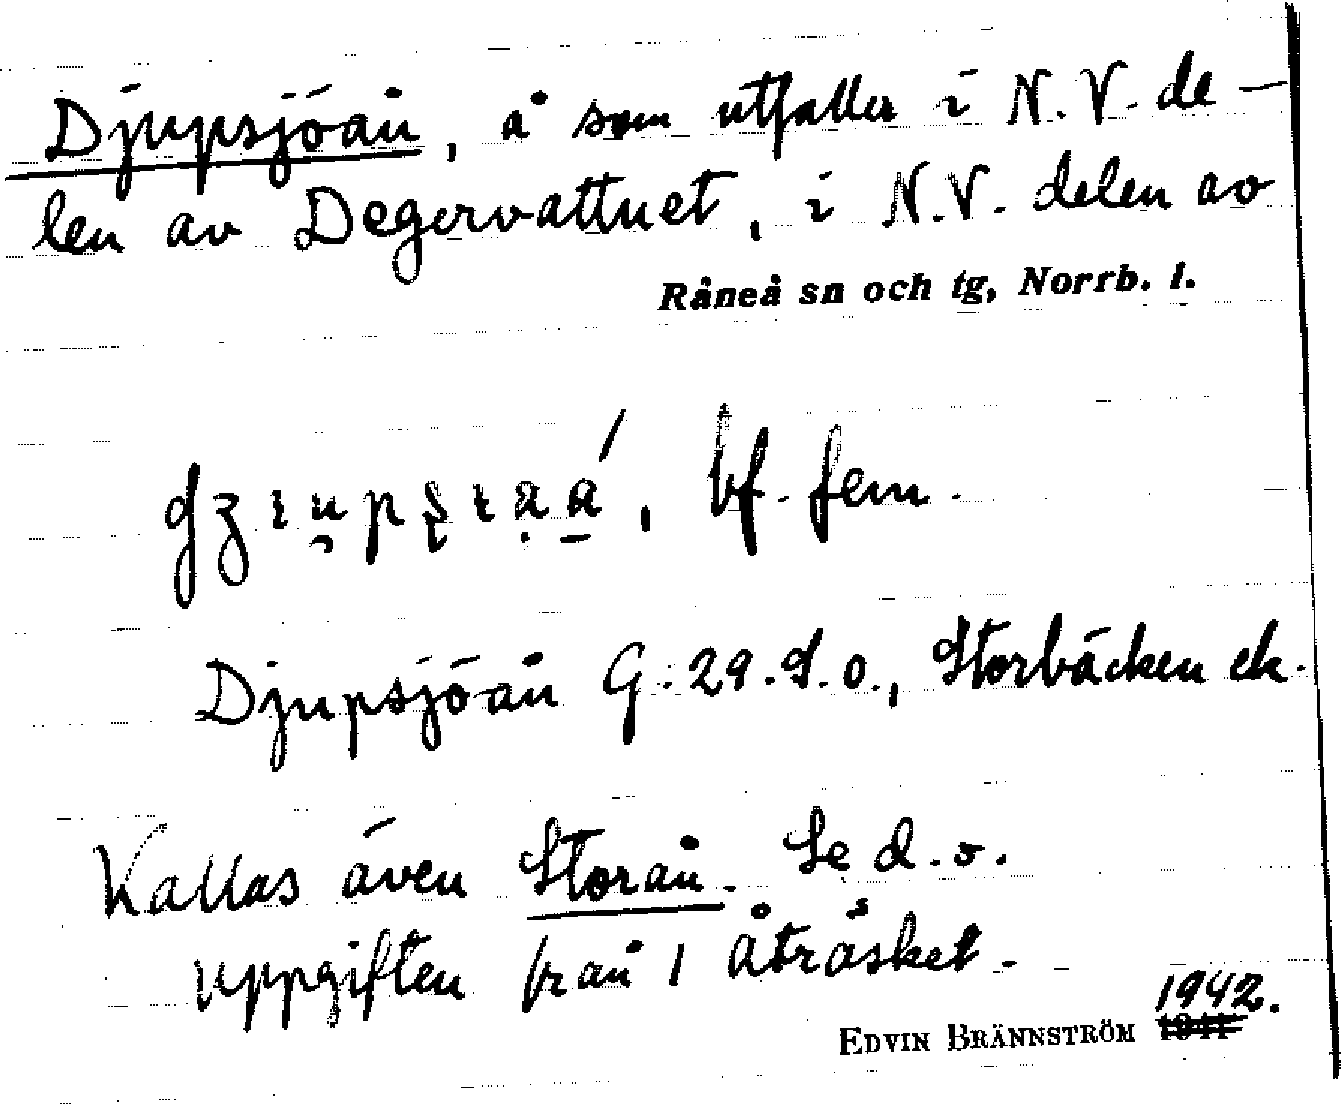 Djupsjöån, å som utfaller i N.V. de-
len av Degervattnet, i N.V. delen av
Råneå sn och tg, Norrb. l.
bf. fem.
Djupsjöån G: 29. S. o., Storbäcken ek.
Kallas även Storån. Se d. o.
uppgiften från 1 Åträsket.
1942.
EDVIN BRÄNNSTRÖM 1941